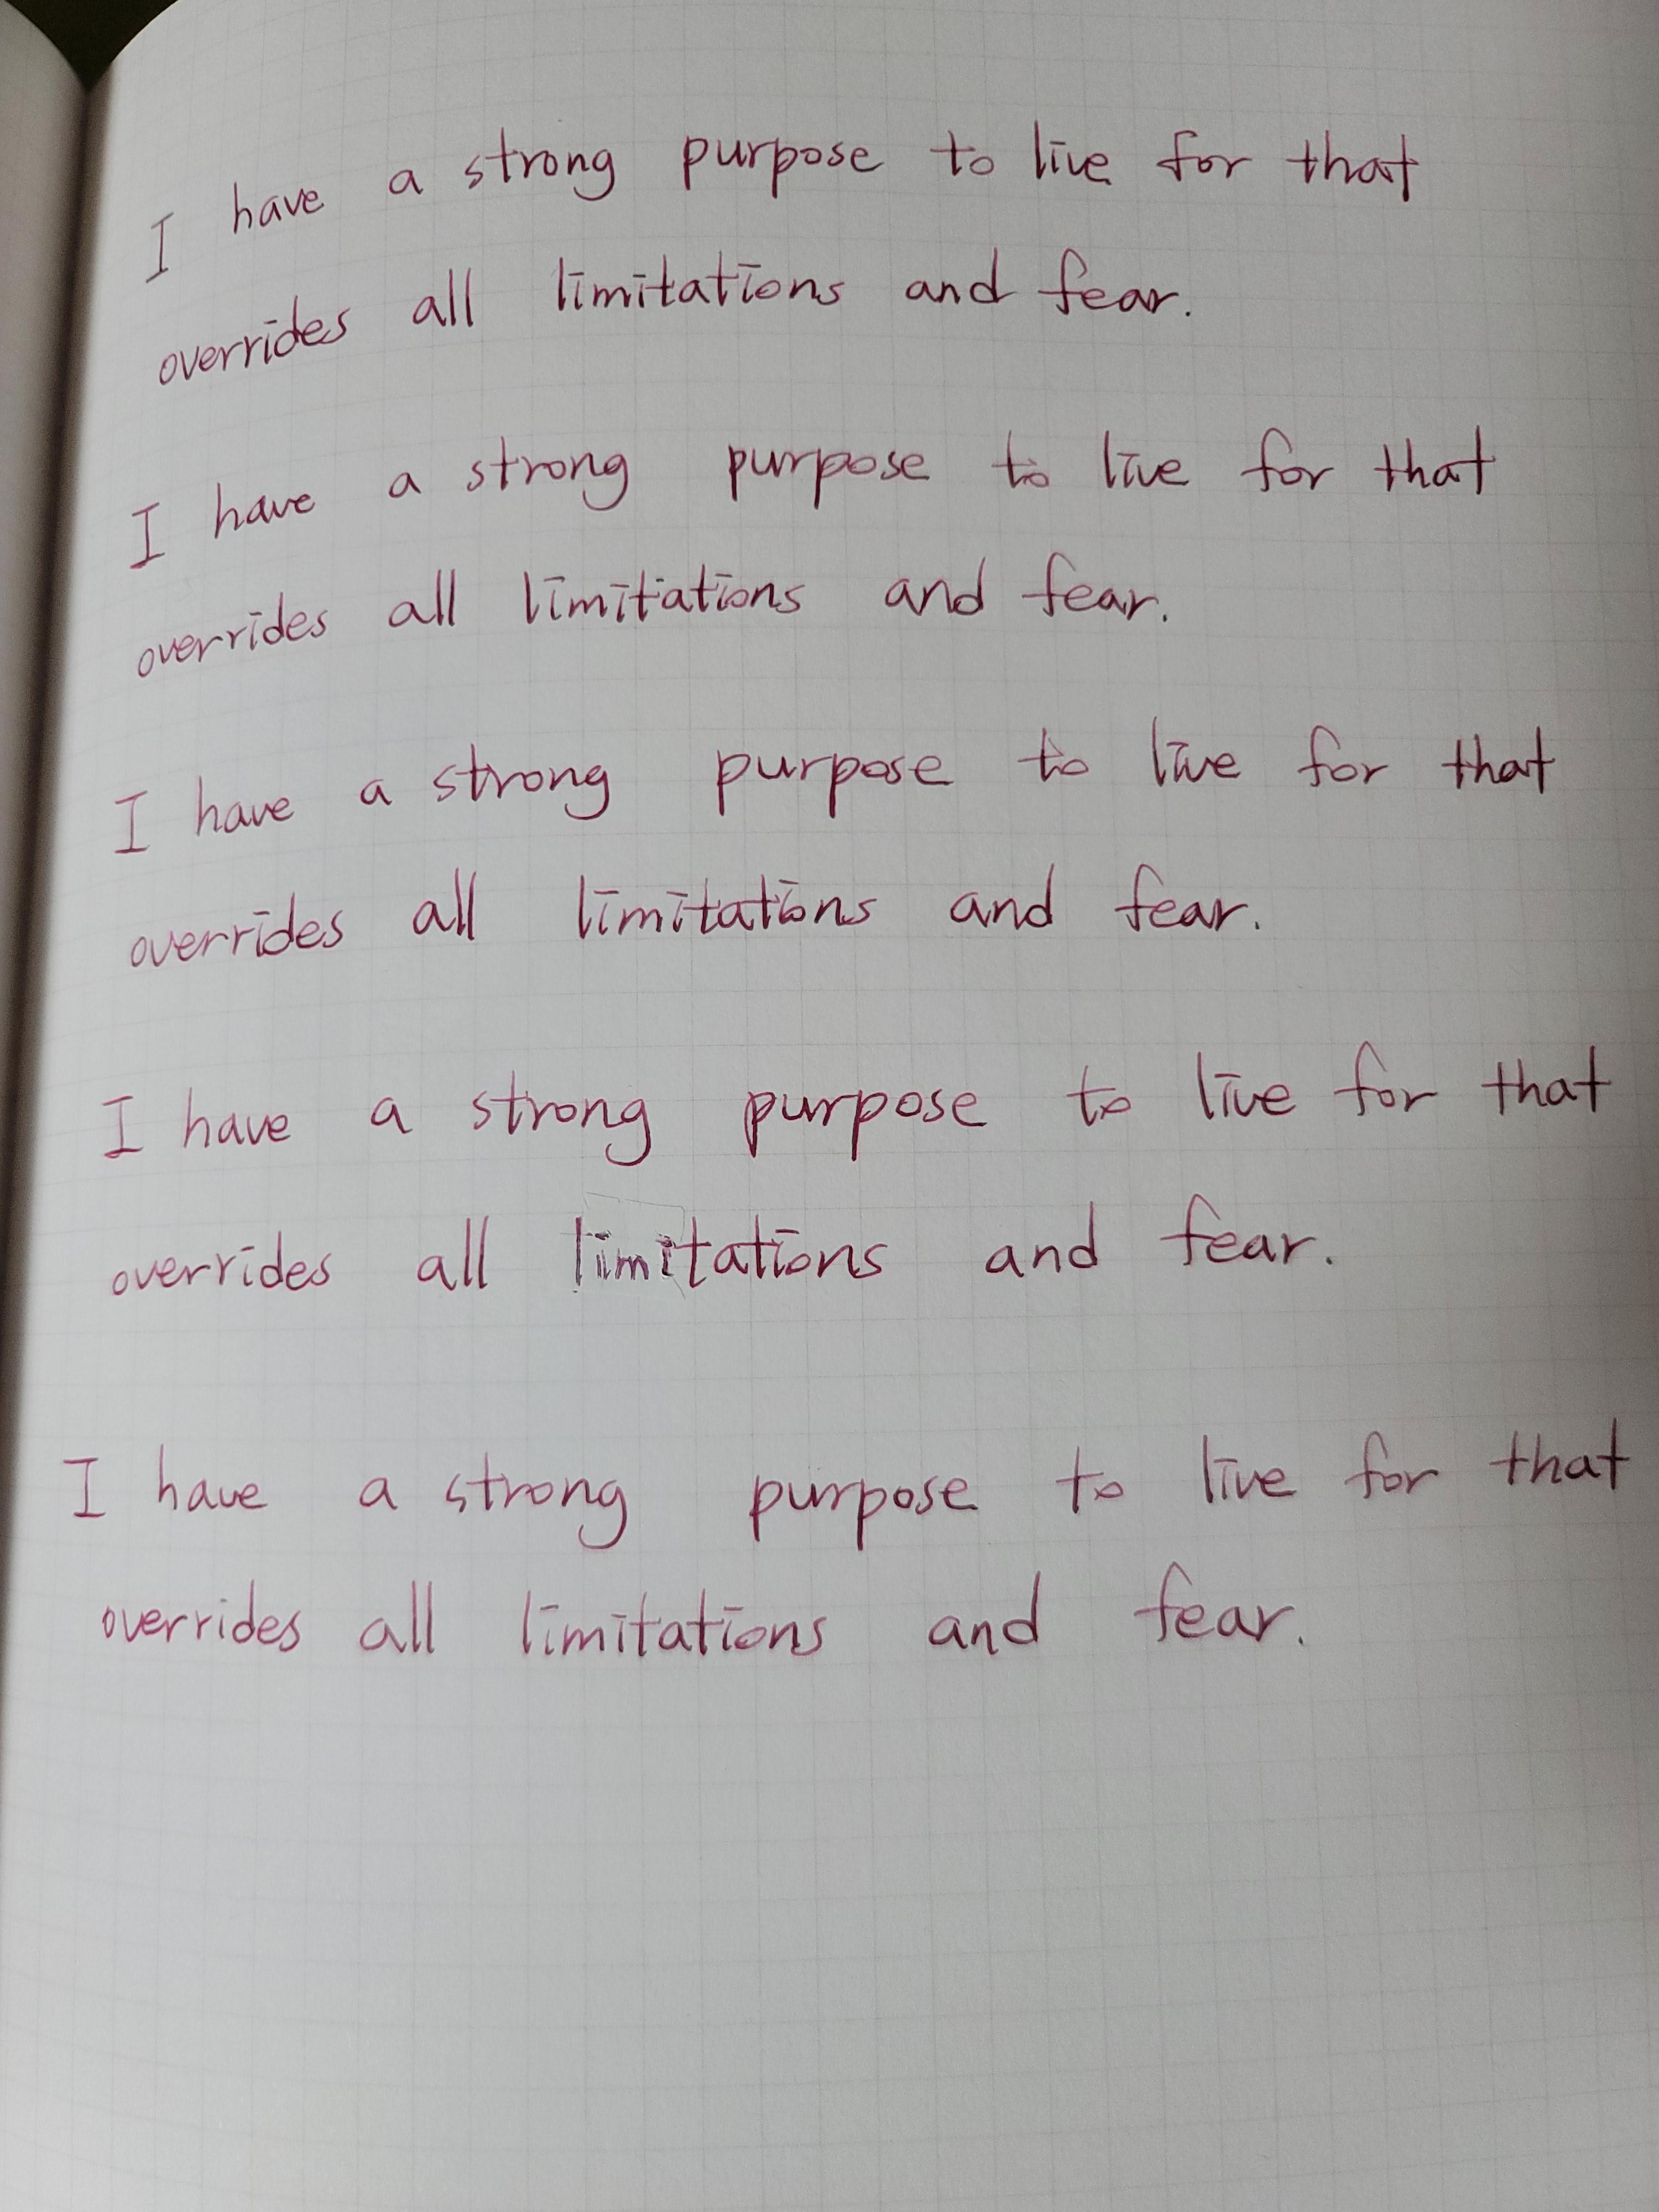 I have a strong purpose to live for that
overrides all limitations and fear.
I have a strong purpose to live for that
overrides all limitations and fear.
I have a strong purpose to live for that
overrides all limitations and fear.
I have a strong purpose to live for that
overrides all limitations and fear.
I have a strong purpose to live for that
overrides all limitations and fear.